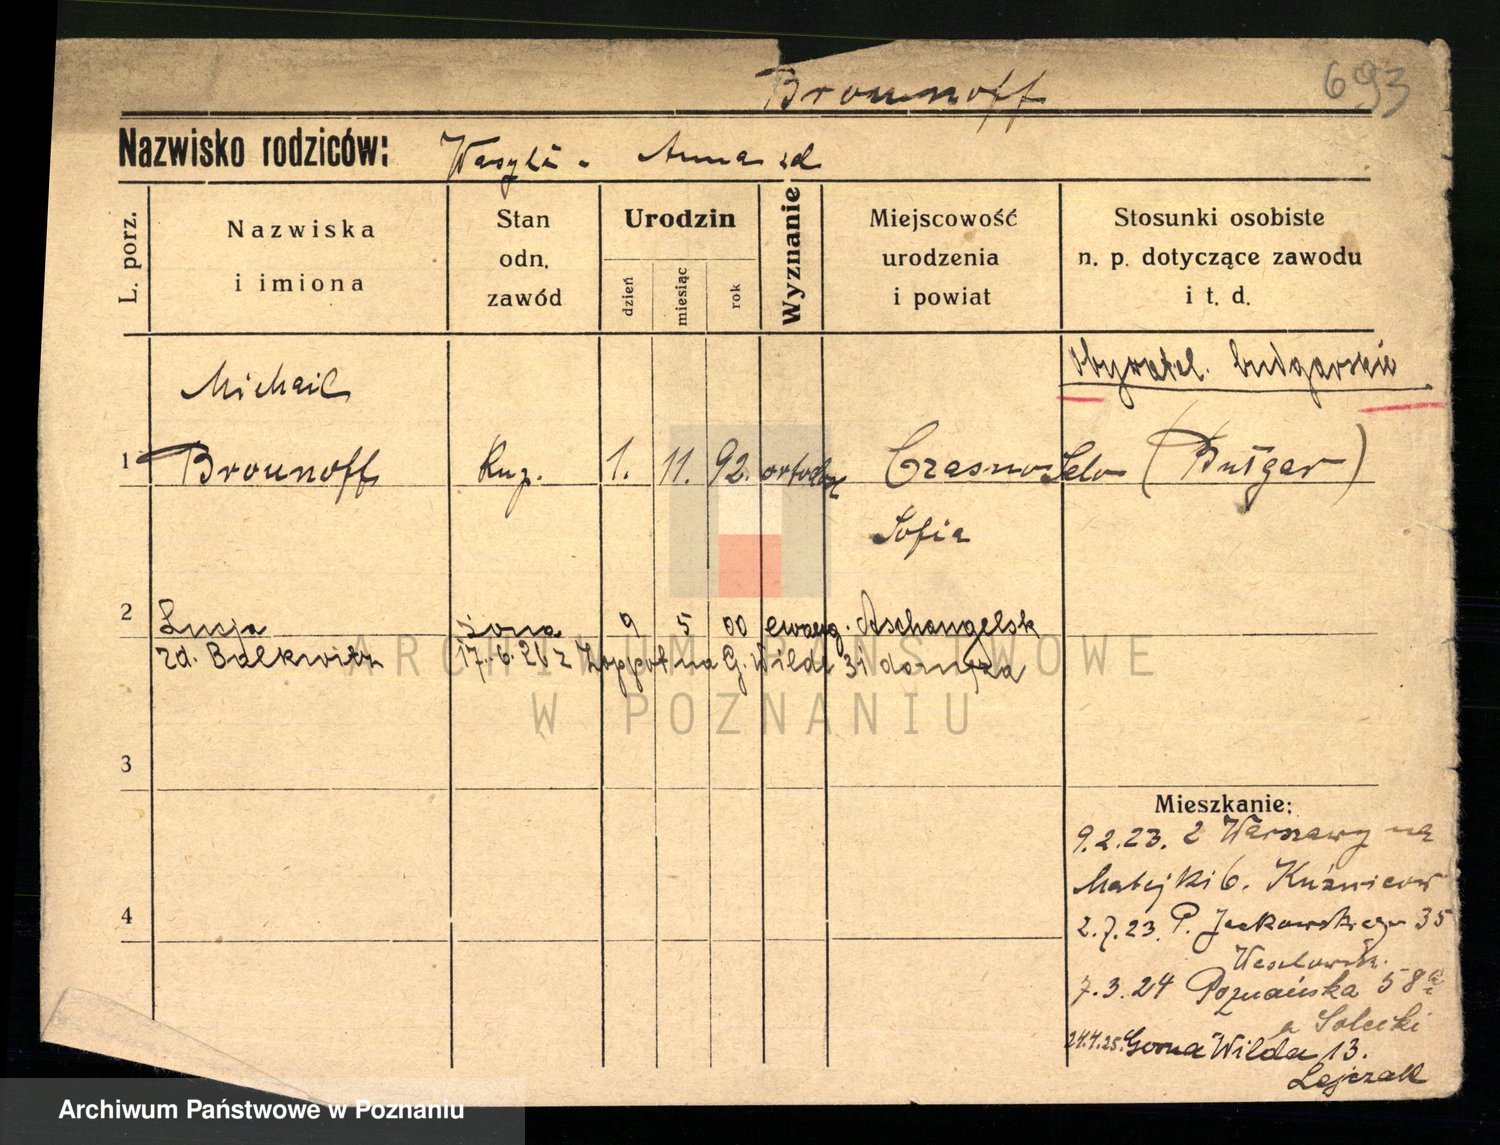 693
Brounoff
Nazwisko rodziców: Wasyli - Anna zd
L. porz.
Nazwiska
i imiona
Stan
odn.
zawód
Urodzin
dzień
miesiąc
rok
Wyznanie
Miejscowość
urodzenia
i powiat
Stosunki osobiste
n. p. dotyczące zawodu
i t. d.
Obywatel. bułgarskie
Michail
1 Brounoff Kup. 1. 11. 92. ortodox Czasnosselo (Bułgar)
Sofia
2 Lucja żona 9 5 00 ewang. Aschangelsk
zd. Balkwitz 17.6.26 z Zoppot na G. Wilda 31 do męża
ARCHIWUM PAŃSTWOWE
W POZNANIU
3
4
Mieszkanie:
9.2.23. z Warszawy na
Matejki 6. Kuźnicow
2.7.23. P. Jackowskiego 35
7.3.24 Poznańska 58a
a Solecki
24.4.25. Gorna Wilda 13.
Lejczak
Archiwum Państwowe w Poznaniu